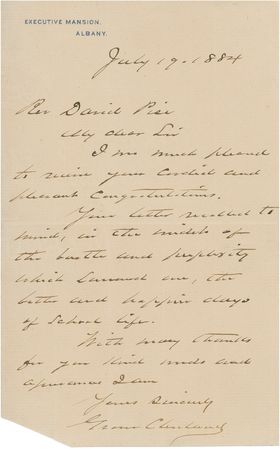 EXECUTIVE MANSION,
ALBANY.
July 19. 1884
Rev David Pise
My dear Sir
I am much pleased
to receive your cordial and
pleasant Congratulations.
Your letter recalled to
mind, in the midst of
the bustle and perplexity
which surround me, the
better and happier days
of School life.
With many thanks
for your kind words and
assurances I am
Yours Sincerely
Grover Cleveland